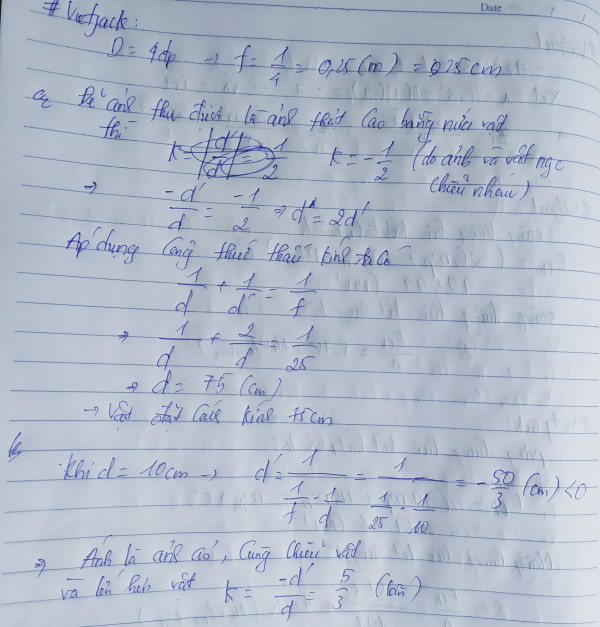 # Vietjack:
Date
D = 4dp → f = 1/4 = 0,25 (m) = 25cm
a, Để ảnh thu được là ảnh thật cao bằng nửa vật
thì k = - 1/2 (do ảnh và vật ngc
chiều nhau)
⇒ -d'/d = -1/2 ⇒ d = 2d'
Áp dụng công thức thấu kính ta có
1/d + 1/d' = 1/f
⇒ 1/d + 2/d = 1/25
⇒ d = 75 (cm)
→ Vật đặt cách kính 75cm
b,
Khi d = 10cm → d' = 1/(1/f - 1/d) = 1/(1/25 - 1/10) = - 50/3 (cm) < 0
⇒ Ảnh là ảnh ảo, cùng chiều vật
và lớn hơn vật k = -d'/d = 5/3 (lần)